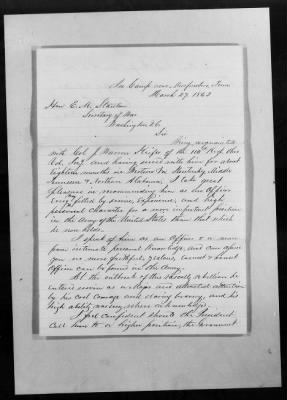 In Camp near Murfreesboro, Tenn
March 27, 1863
Hon E. M. Stanton
Secretary of War
Washington D.C.
Sir
Being acquainted
with Col J Warren Keifer of the 110th Regt Ohio
Vol. Inf and having served with him for about
eighteen months in Western Va Kentucky, Middle
Tennessee & Northern Alabama, I take great
pleasure in recommending him as an Officer
every way fitted by service, experience, and high
personal character for a more important position
in the Army of the United States than that which
he now holds.
I speak of him as an Officer & a man
from intimate personal knowledge, and can assure
you no more faithful, zealous, earnest & honest
Officer can be found in the Army.
At the outbreak of this wicked rebellion he
entered service as a Major and attracted attention
by his cool courage and daring bravery, and his
high ability
I feel confident should the President
call him to a higher position, the Government